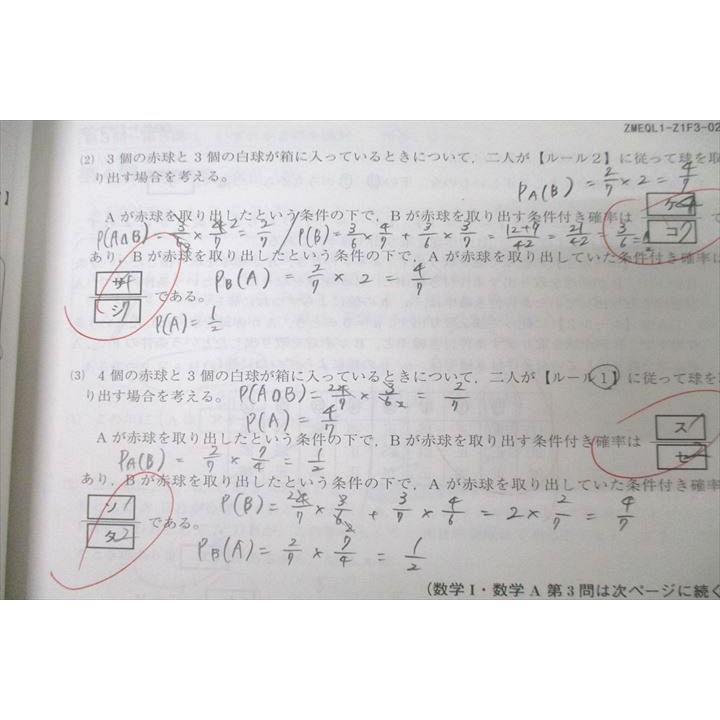 ZMEQL1-Z1F3-02
(2) 3個の赤球と3個の白球が箱に入っているときについて，二人が【ルール2】に従って球を取
り出す場合を考える。 P_A(B) = 2/7 × 2 = 4/7
Aが赤球を取り出したという条件の下で，Bが赤球を取り出す条件付き確率は ケ4/コ7 で
P(A∩B) = 3/6 × 4/7 = 2/7 / P(B) = 3/6 × 4/7 + 3/6 × 3/7 = 12+9/42 = 21/42 = 3/6 =
あり，Bが赤球を取り出したという条件の下で，Aが赤球を取り出していた条件付き確率は
サ4/シ7 である。 P_B(A) = 2/7 × 2 = 4/7
P(A) = 1/2
(3) 4個の赤球と3個の白球が箱に入っているときについて，二人が【ルール1】に従って球を
り出す場合を考える。 P(A∩B) = 4/7 × 3/6 = 2/7
P(A) = 4/7
Aが赤球を取り出したという条件の下で，Bが赤球を取り出す条件付き確率は ス1/セ2
P_A(B) = 2/7 × 7/4 = 1/2
あり，Bが赤球を取り出したという条件の下で，Aが赤球を取り出していた条件付き確率
ソ1/タ2 である。 P(B) = 4/7 × 3/6 + 3/7 × 4/6 = 2 × 2/7 = 4/7
P_B(A) = 2/7 × 7/4 = 1/2
(数学Ⅰ・数学A 第3問は次ページに続く